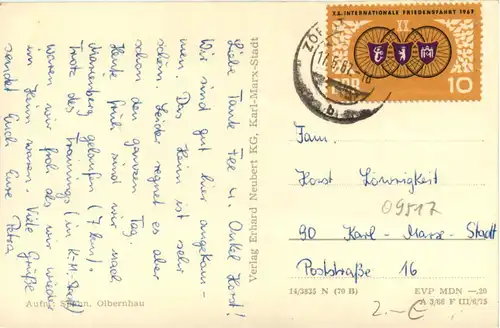 Liebe Tante Fee u. Onkel Horst!
Wir sind gut hier angekom-
men. Das Heim ist sehr
schön. Leider regnet es aber
schon den ganzen Tag.
Heute früh sind wir nach
gelaufen (7 km).
Trotz des Trainings (in K.-M.-Stadt)
waren wir froh als wir wieder
im Heim waren. Viele Grüße
sendet Euch Eure Petra
Verlag Erhard Neubert KG, Karl-Marx-Stadt
Aufn.: Olbernhau
XX. INTERNATIONALE FRIEDENSFAHRT 1967
DDR
10
Fam.
Horst Löwrigkeit
09517
90 Karl-Marx-Stadt
Poststraße 16
14/3835 N (70 B)
EVP MDN —,20
A 3/66 F III/6/75
2.- €